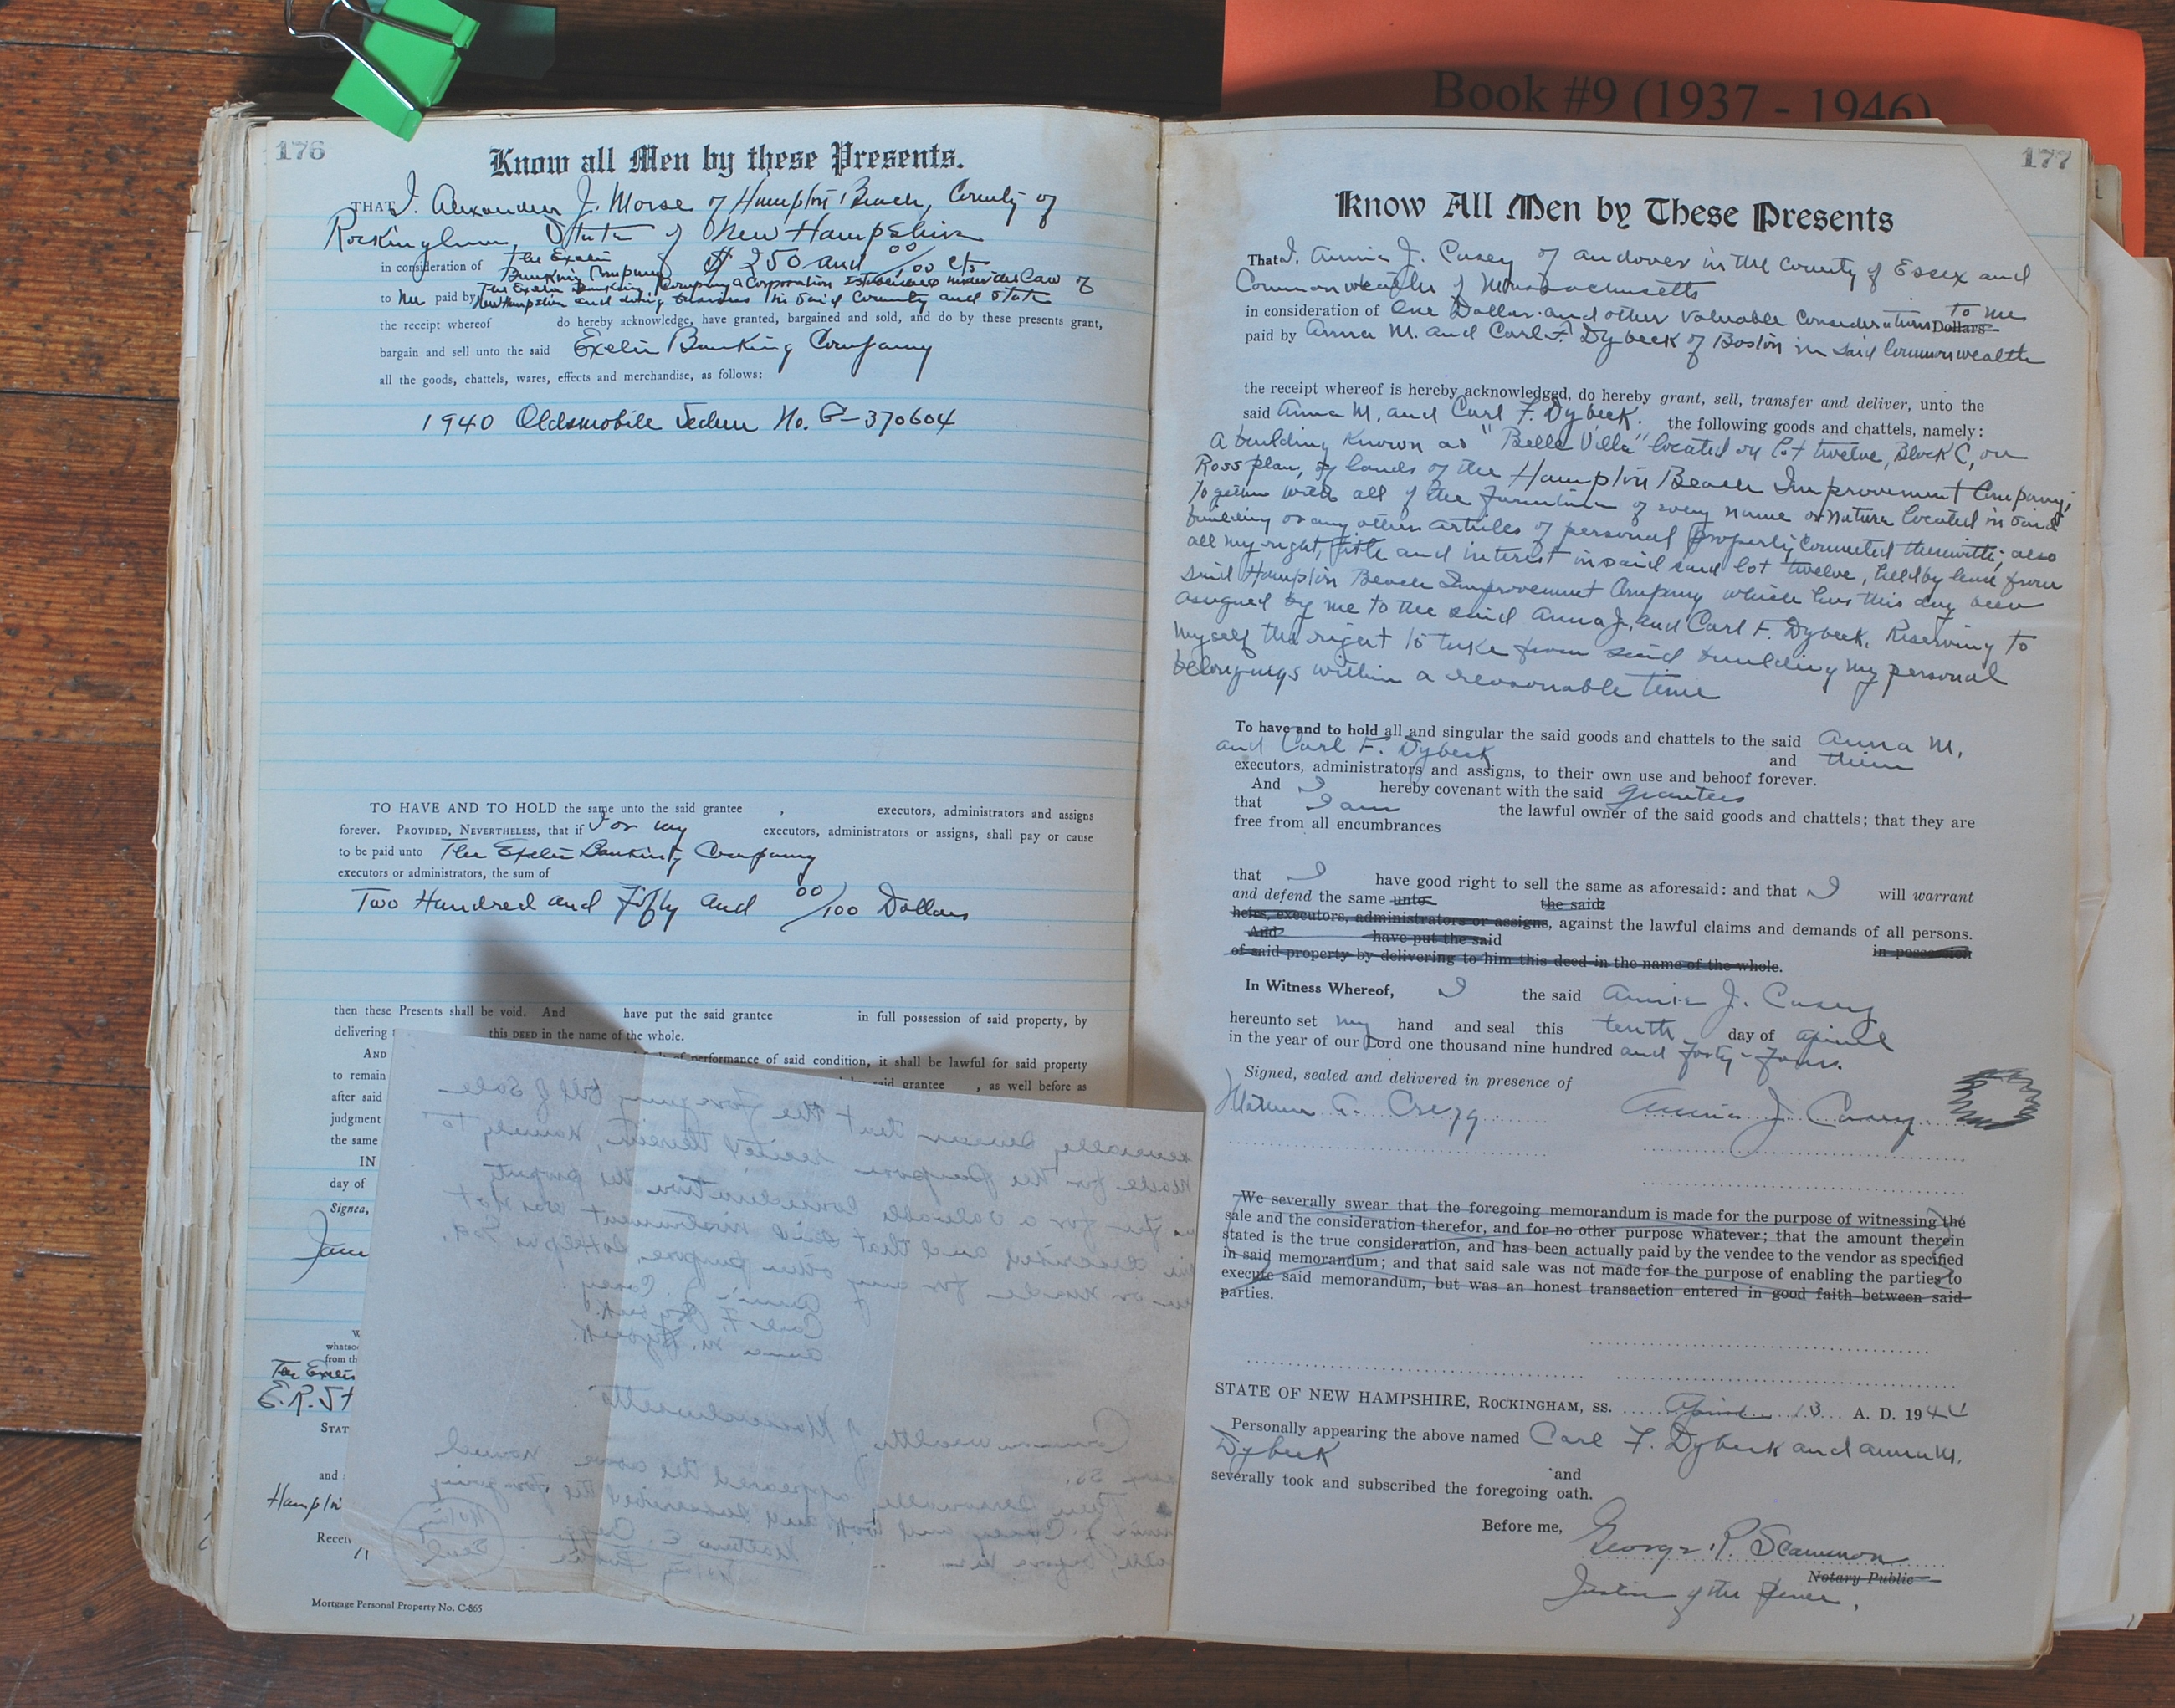 Book #9 (1937 - 1946)
176
Know all Men by these Presents.
THAT I, Alexander J. Morse of Hampton Beach, County of
Rockingham, State of New Hampshire
in consideration of The Exeter Banking Company of $ 250 and 00/100 cts
to me paid by The Exeter Banking Company a Corporation established under the Law of
New Hampshire and doing business in said County and State
the receipt whereof do hereby acknowledge, have granted, bargained and sold, and do by these presents grant,
bargain and sell unto the said Exeter Banking Company
all the goods, chattels, wares, effects and merchandise, as follows:
1940 Oldsmobile Sedan No. G-370604
TO HAVE AND TO HOLD the same unto the said grantee , executors, administrators and assigns
forever. PROVIDED, NEVERTHELESS, that if I or my executors, administrators or assigns, shall pay or cause
to be paid unto The Exeter Banking Company
executors or administrators, the sum of
Two Hundred and Fifty and 00/100 Dollars
then these Presents shall be void. And have put the said grantee in full possession of said property, by
delivering this DEED in the name of the whole.
AND of performance of said condition, it shall be lawful for said property
to remain said grantee , as well before as
after said
judgment
the same
IN
day of
Signed,
from th
The Exeter
E. R. St
STAT
and
Hampton
Receiv
11
Mortgage Personal Property No. C-865
that the foregoing bill of Sale
made for the purpose recited therein, namely to
for a valuable consideration the property
described and that said instrument was not
or made for any other purpose, So Help us God.
Annie J. Casey
Carl F. Dybeck
Anna M. Dybeck
Commonwealth of Massachusetts
ss.
Then personally appeared the above named
J. Casey and took and subscribed the foregoing
oath, before me
Notary Seal
Notary Public
177
Know All Men by These Presents
That I, Annie J. Casey of Andover in the County of Essex and
Commonwealth of Massachusetts
in consideration of One Dollar and other valuable considerations Dollars to me
paid by Anna M. and Carl F. Dybeck of Boston in said Commonwealth
the receipt whereof is hereby acknowledged, do hereby grant, sell, transfer and deliver, unto the
said Anna M. and Carl F. Dybeck. the following goods and chattels, namely:
A building known as "Belle Villa" located on lot twelve, Block C, on
Ross plan, of lands of the Hampton Beach Improvement Company;
together with all of the furniture of every name or nature located in said
building or any other articles of personal property connected therewith; also
all my right, title and interest in said said lot twelve, held by lease from
said Hampton Beach Improvement Company which has this day been
assigned by me to the said Anna J. and Carl F. Dybeck. Reserving to
myself the right to take from said building my personal
belongings within a reasonable time
To have and to hold all and singular the said goods and chattels to the said Anna M.
and Carl F. Dybeck and their
executors, administrators and assigns, to their own use and behoof forever.
And I hereby covenant with the said grantees
that I am the lawful owner of the said goods and chattels; that they are
free from all encumbrances
that I have good right to sell the same as aforesaid: and that I will warrant
and defend the same unto the said
heirs, executors, administrators or assigns, against the lawful claims and demands of all persons.
And have put the said in possession
of said property by delivering to him this deed in the name of the whole.
In Witness Whereof, I the said Annie J. Casey
hereunto set my hand and seal this tenth day of April
in the year of our Lord one thousand nine hundred and forty-four.
Signed, sealed and delivered in presence of
Cregg Annie J. Casey
We severally swear that the foregoing memorandum is made for the purpose of witnessing the
sale and the consideration therefor, and for no other purpose whatever; that the amount therein
stated is the true consideration, and has been actually paid by the vendee to the vendor as specified
in said memorandum; and that said sale was not made for the purpose of enabling the parties to
execute said memorandum, but was an honest transaction entered in good faith between said
parties.
STATE OF NEW HAMPSHIRE, ROCKINGHAM, SS. April 13 A. D. 1944
Personally appearing the above named Carl F. Dybeck and Anna M.
Dybeck and
severally took and subscribed the foregoing oath.
Before me,
George R. Scammon
Notary Public
Justice of the Peace.